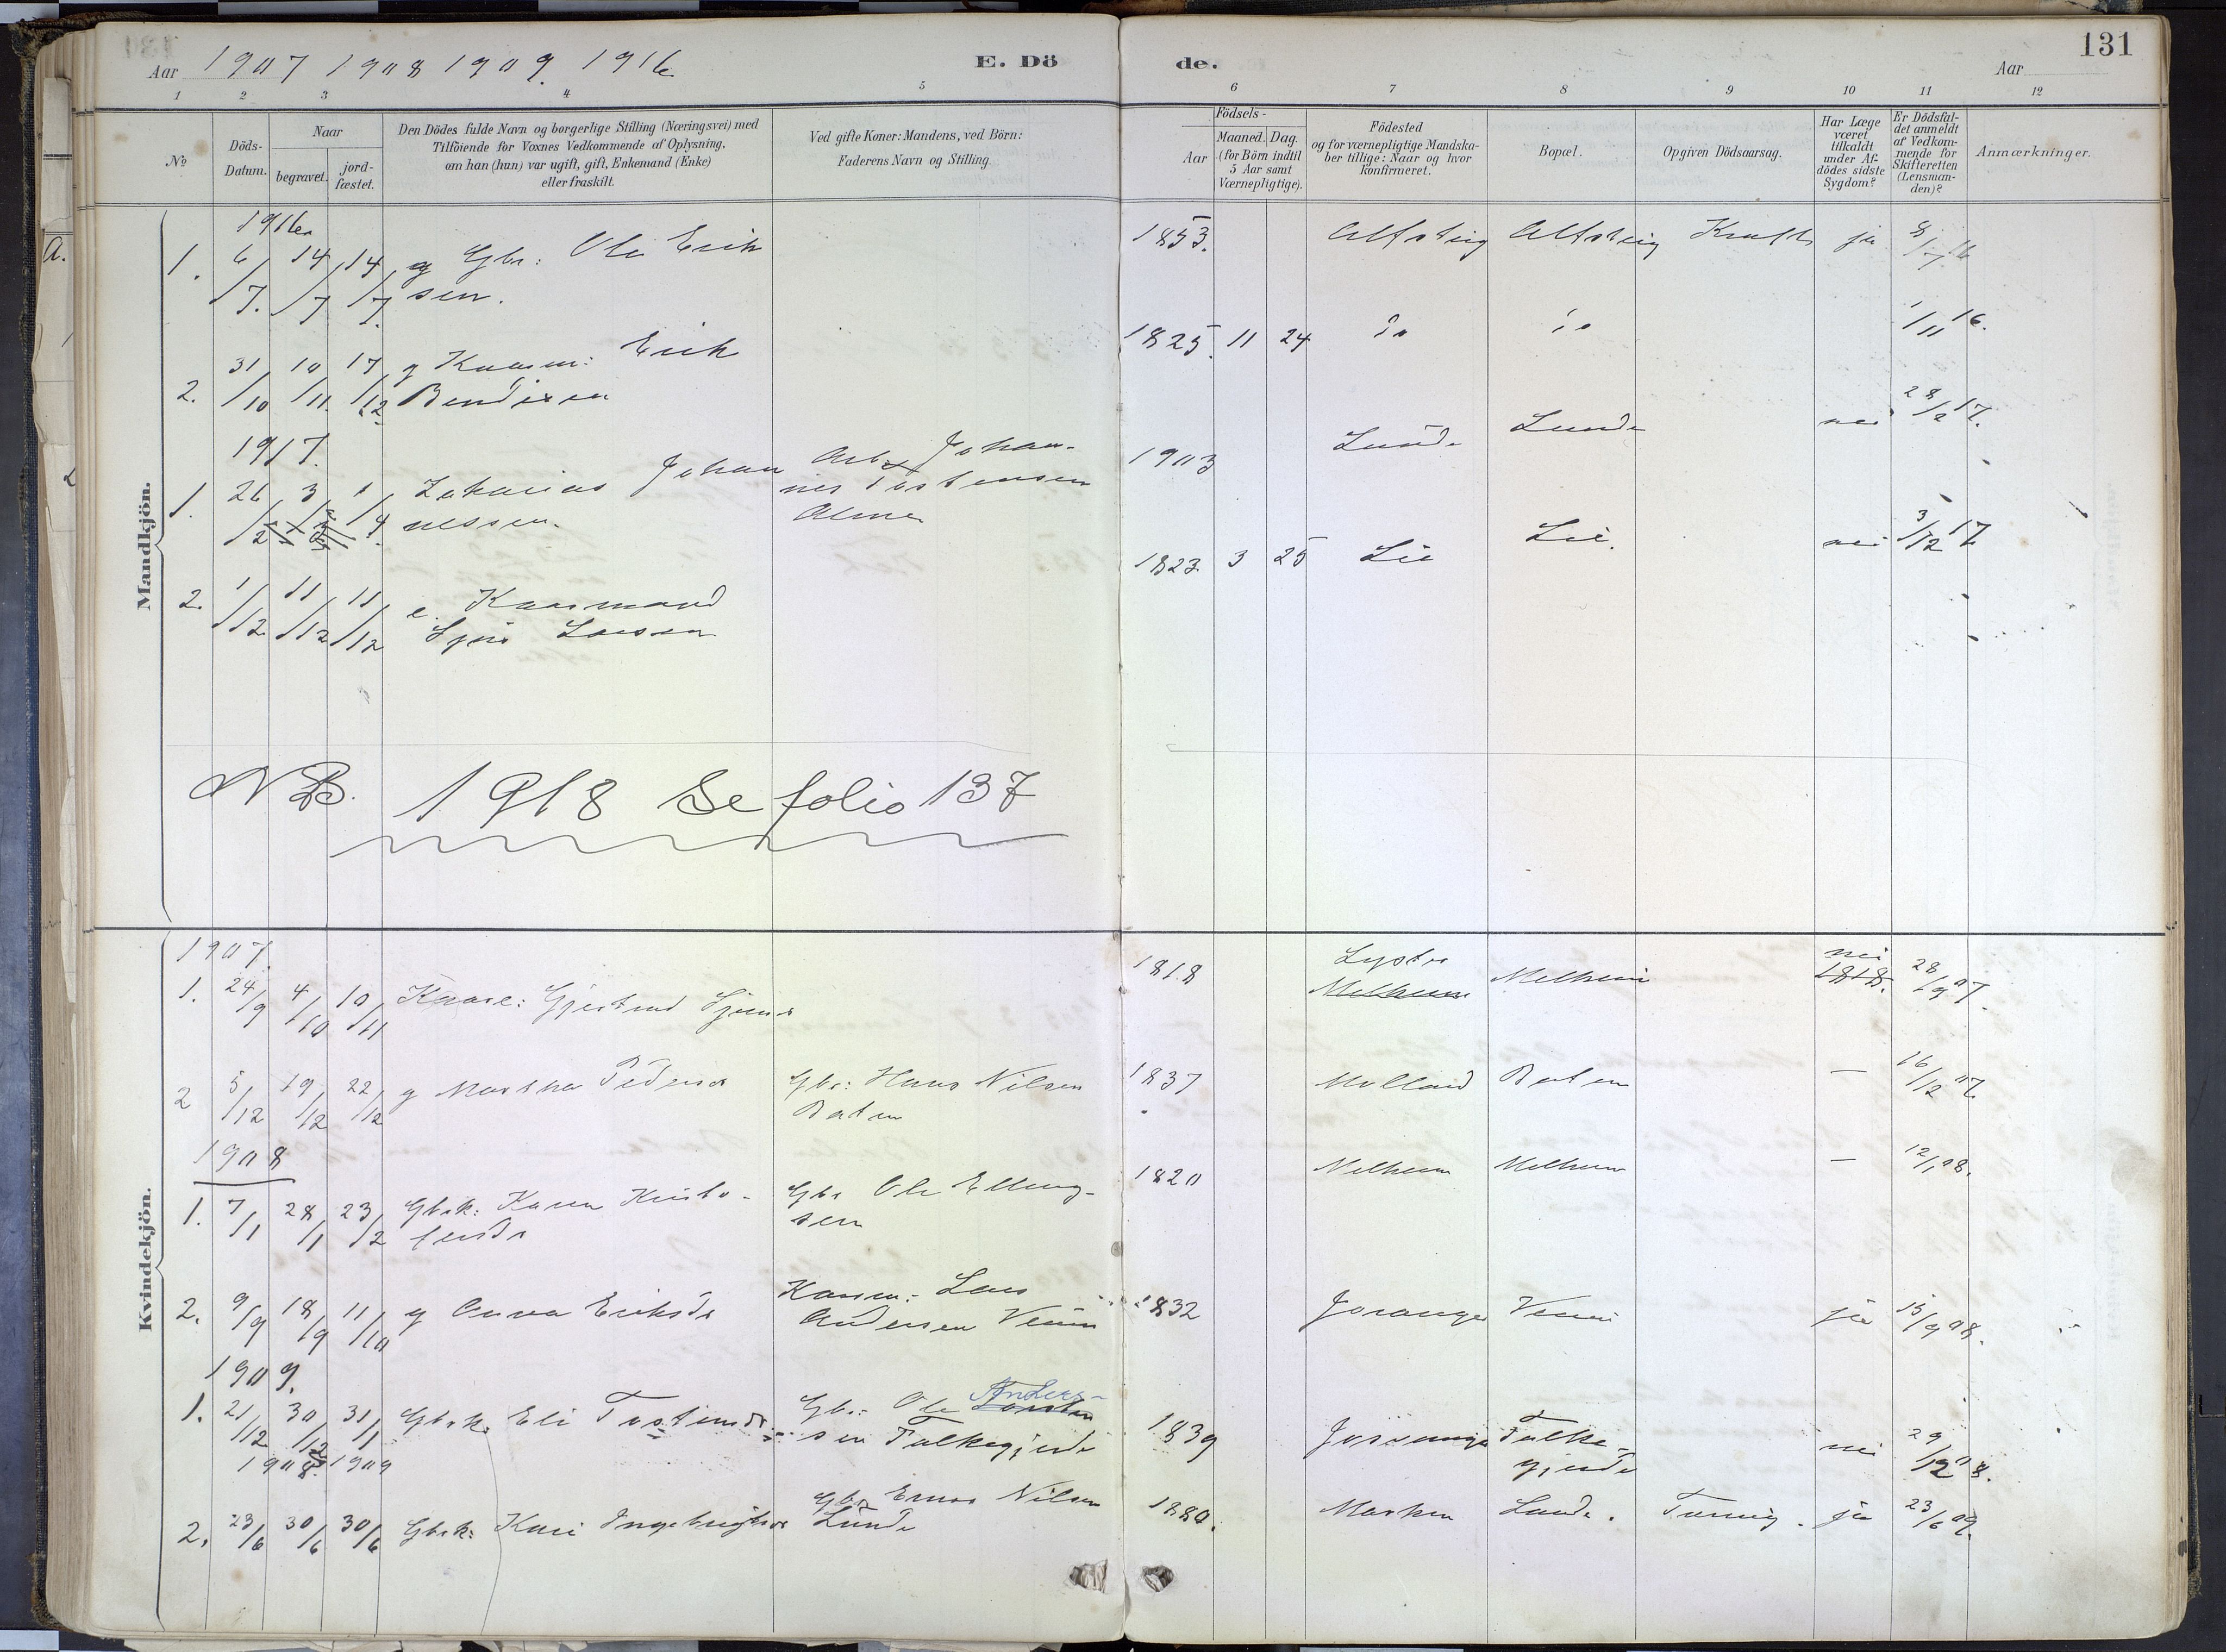 131
Aar 1907 1908 1909. 1916
E. Dö de.
Aar
1 2 3 4 5 6 7 8 9 10 11 12
No
Döds-Datum.
Naar
begravet.
jord-fæstet.
Den Dödes fulde Navn og borgerlige Stilling (Næringsvei) med
Tilföiende for Voxnes Vedkommende af Oplysning,
om han (hun) var ugift, gift, Enkemand (Enke)
eller fraskilt.
Ved gifte Koner: Mandens, ved Börn:
Faderens Navn og Stilling.
Födsels-
Aar
Maaned. Dag.
(for Börn indtil
5 Aar samt
Værnepligtige).
Födested
og for værnepligtige Mandska-
ber tillige: Naar og hvor
konfirmeret.
Bopæl.
Opgiven Dödsaarsag.
Har Læge
været
tilkaldt
under Af-
dödes sidste
Sygdom?
Er Dödsfal-
det anmeldt
af Vedkom-
mende for
Skifteretten
(Lensman-
den)?
Anmærkninger.
Mandkjön.
1916
1. 6/7. 14/7 14/7. g Gbr: Ole Erik 1853. Alfsteig Alfsteig Kræft ja 8/7 16
sen.
2. 31/10 10/11. 17/12 g Kaarm: Erik 1825. 11 24 do do 1/11 16.
Bendixen
1917.
1. 26/2 3/3 1/4. Zakarias Johan Arb. Johan- 1903 Lunde Lunde nei 28/2 17.
nessen. nes Tostensen
2. 1/12 11/12 11/12 e. Kaarmand 1823. 3 25 Lie Lie. nei 3/12 17
Larsen
NB. 1918 Se folio 137
Kvindekjön.
1907
1. 24/9 4/10 10/11 Kaare: Gjertrud 1818 Lyster Melheim nei 28/9 07.
Melheim 1818.
2 5/12 19/12 22/12 g Martha Pedersdr Gbr: Hans Nilsen 1837 Molland Baten — 16/12 07.
Baten
1908
1. 7/1 28/1 23/2 Gbrk: Karen Kristo- Gbr Ole Elling- 1820 Melheim Melheim — 12/1 08.
fersdr sen
2. 9/9 18/9 11/10 g Anna Eriksdr Kaarm: Lars 1832 Joranger Venin ja 15/9 08.
Andersen Venin
1909.
1. 21/12 30/12 31/1 Gbrk. Eli Tostensdr. Gbr: Ole Anders- 1839 Joranger Falke- nei 29/12 08.
1908. 1909 sen Falkegjerde gjerde
2. 23/6 30/6 30/6 Gbrk: Kari Ingebrigtsdr Gbr Nilsen 1880. Marken Lunde. Tæring. ja 23/6 09.
Lunde